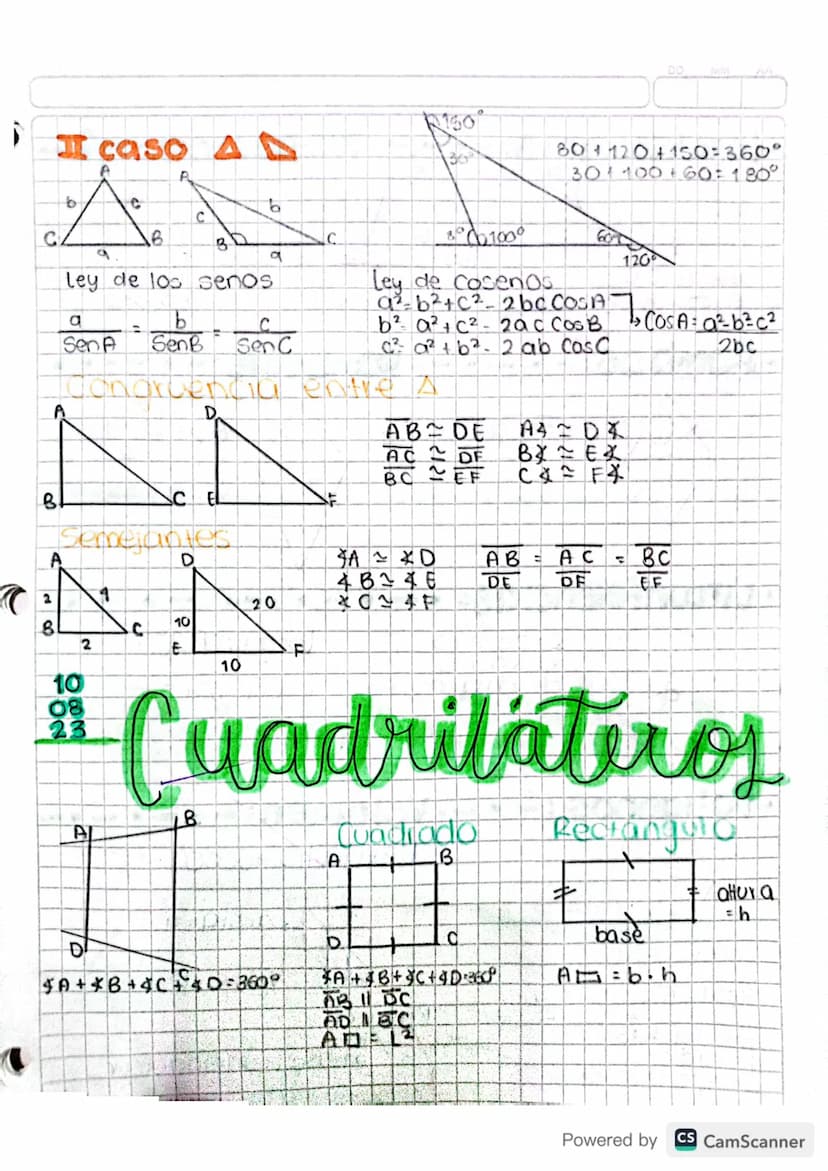 DD MM AA
II caso
150°
30°
80+120+150=360°
30+100+60=180°
A
b
c
C
B
a
A
c
b
B
a
C
8° 100°
60°
120°
Ley de los senos
a = b = c
SenA SenB SenC
Ley de Cosenos
a²=b²+c²- 2bc CosA
b²= a²+c²- 2ac CosB
c²= a²+b²- 2ab CosC
CosA=a²-b²-c²
2bc
Congruencia entre Δ
A
B
C
D
E
F
AB ≃ DE A∡ ≃ D∡
AC ≃ DF B∡ ≃ E∡
BC ≃ EF C∡ ≃ F∡
Semejantes
A
2
4
B
2
C
D
10
20
E
10
F
∡A ≃ ∡D
∡B ≃ ∡E
∡C ≃ ∡F
AB = AC = BC
DE DF EF
10
08
23
Cuadriláteros
A
B
D
C
∡A+∡B+∡C+∡D=360°
Cuadrado
A
B
D
C
∡A+∡B+∡C+∡D=360°
AB || DC
AD || BC
A□ = L²
Rectángulo
altura
=h
base
A▭ = b·h
Powered by CS CamScanner